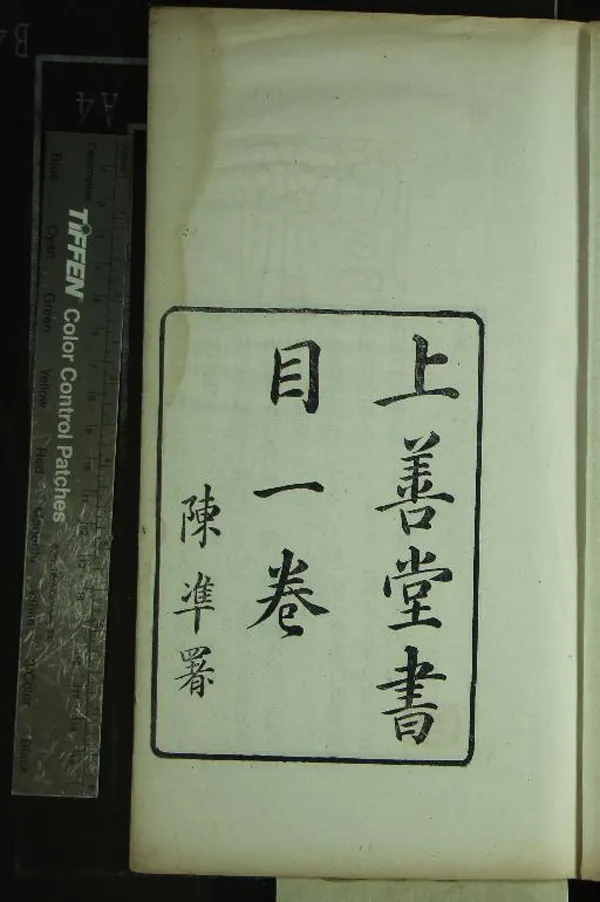 上善堂書
目一卷
陳準署
TIFFEN Color Control Patches
Blue
Cyan
Green
Yellow
Red
Magenta
White
3/Color
Black
A4
B4